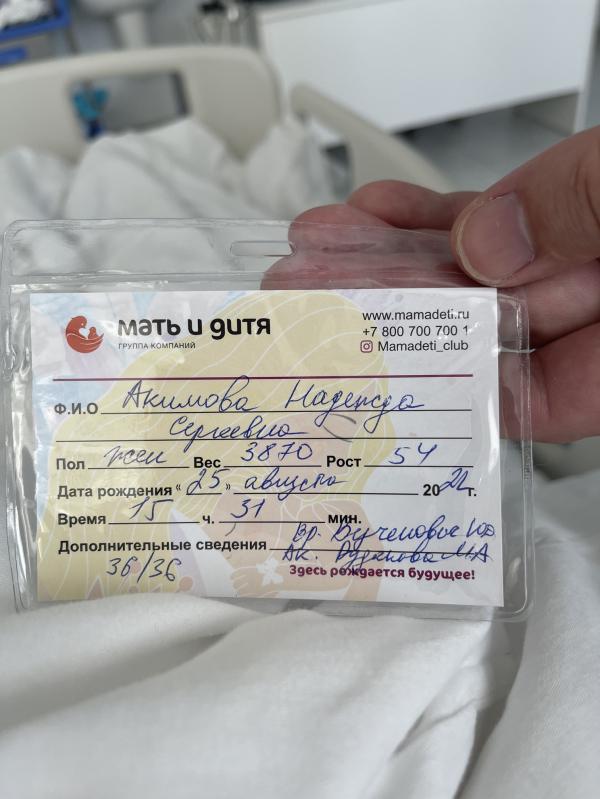 мать и дитя
ГРУППА КОМПАНИЙ
www.mamadeti.ru
+7 800 700 700 1
Mamadeti_club
Ф.И.О Акимова Надежда
Сергеевна
Пол жен Вес 3870 Рост 54
Дата рождения " 25 " августа 2022 г.
Время 15 ч. 31 мин.
Дополнительные сведения Вр.
Ак. М.А
36/36
Здесь рождается будущее!